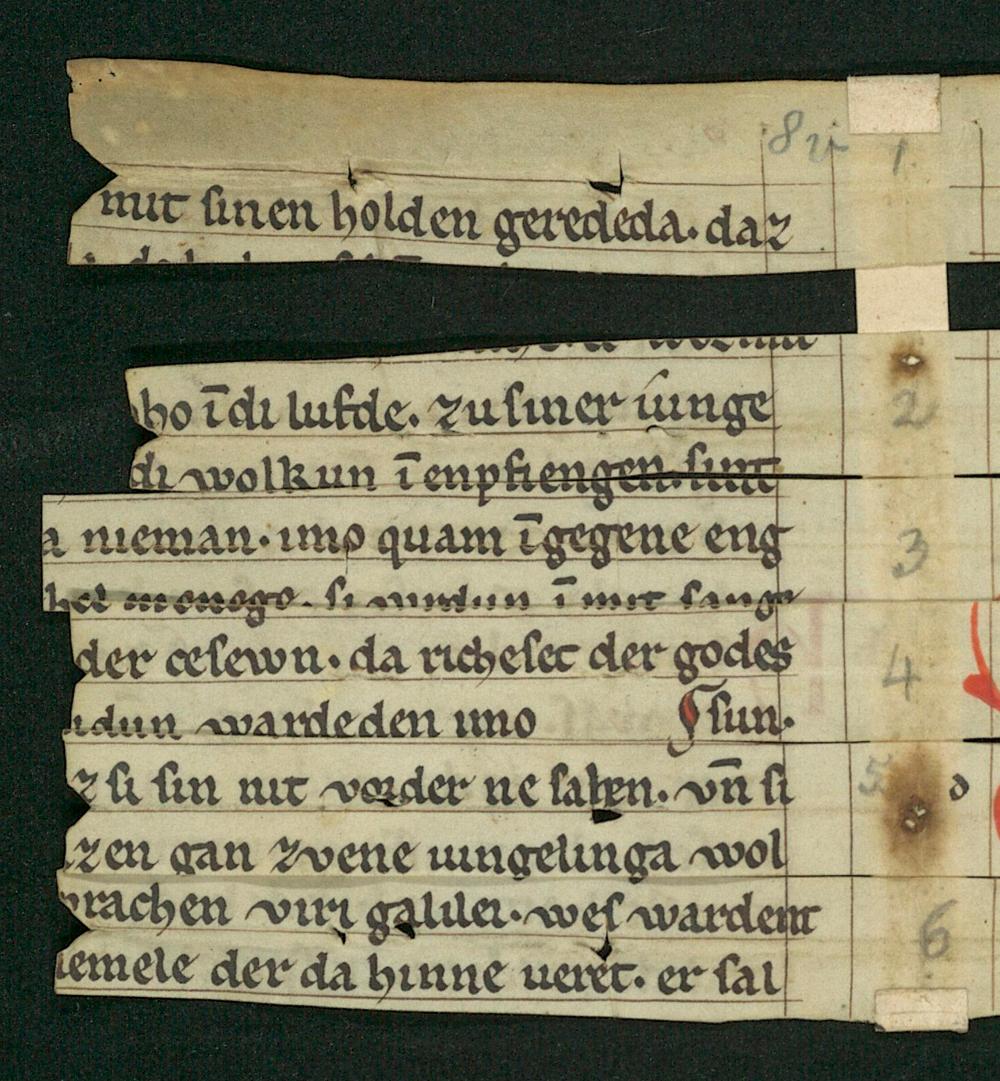 8v 1
mit sinen holden gerededa. daz
2
ho ī di lufde. zu siner iunge
di wolkun ī enpfiengen. sint
a nieman. imo quam ī gegene eng
3
menege. si ī mit sange
der cesewn. da richeset der godes
4
wardeden imo sun.
z si sin nit vorder ne sahen. vn̄ si
5
zen gan zvene iungelinga wol
rachen viri galilei. wes wardent
6
iemele der da hinne ueret. er sal